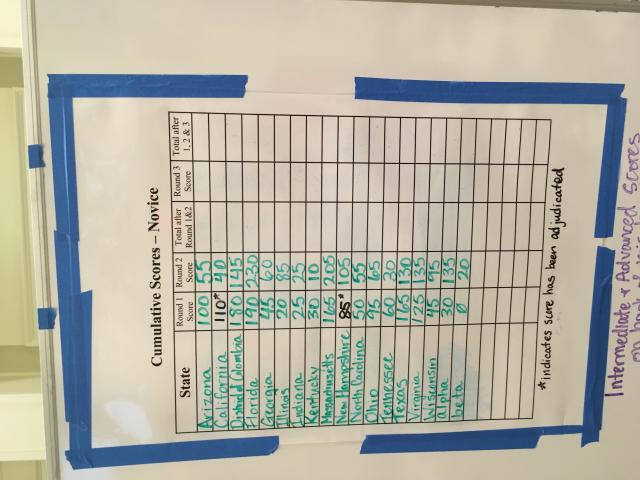 Cumulative Scores – Novice
State Round 1 Score Round 2 Score Total after Round 1&2 Round 3 Score Total after 1, 2 & 3
Arizona 100 55
California 110* 40
District of Colombia 180 145
Florida 190 230
Georgia 45 60
Illinois 20 85
Indiana 25 25
Kentucky 30 10
Massachusetts 165 205
New Hampshire 85* 105
North Carolina 50 55
Ohio 95 65
Tennessee 60 20
Texas 165 130
Virginia 125 135
Wisconsin 45 95
alpha 30 135
beta 0 20
*indicates score has been adjudicated
Intermediate & Advanced Scores
on